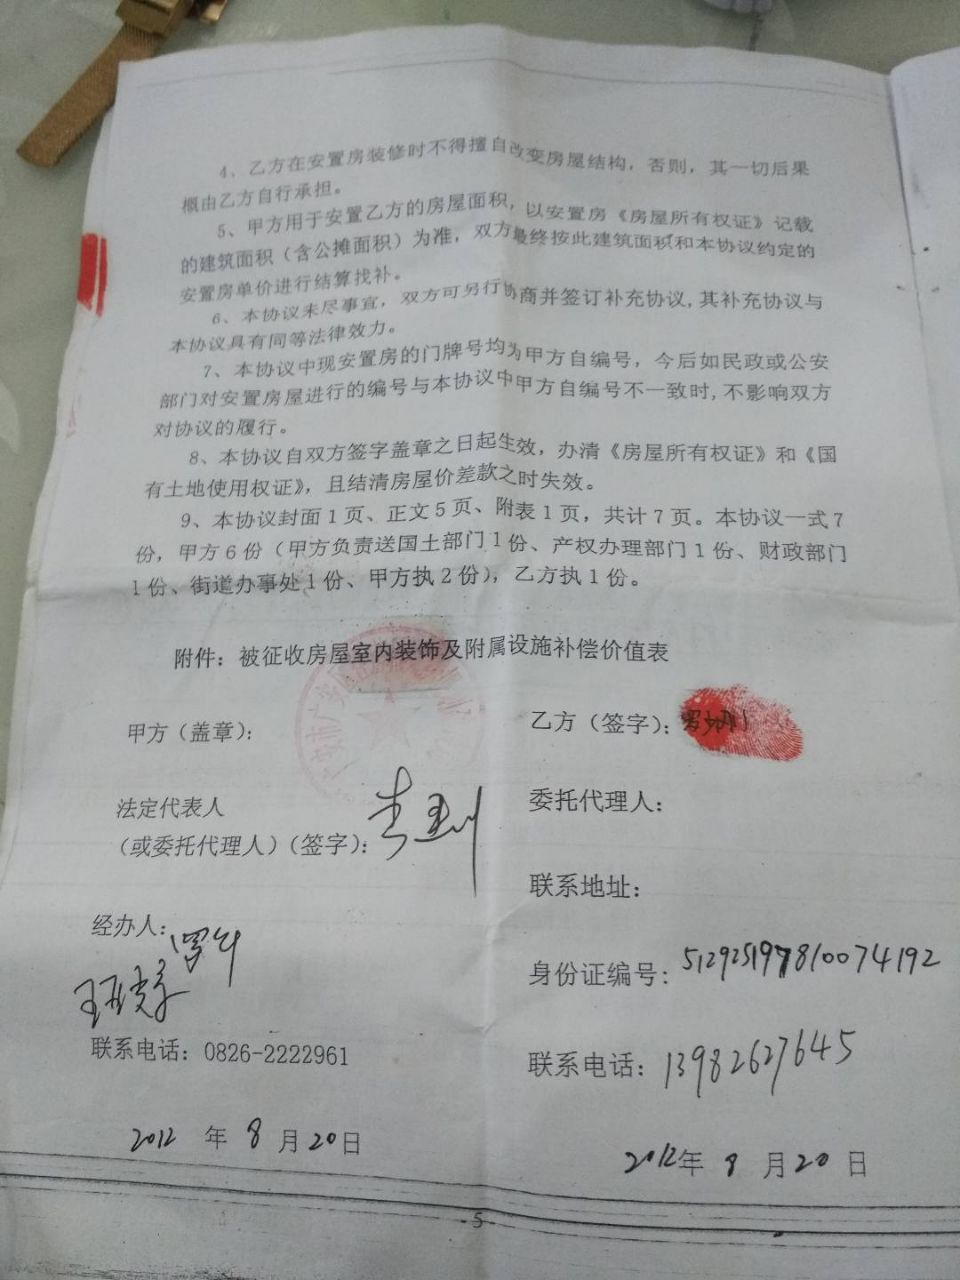 4、乙方在安置房装修时不得擅自改变房屋结构，否则，其一切后果
概由乙方自行承担。
5、甲方用于安置乙方的房屋面积，以安置房《房屋所有权证》记载
的建筑面积（含公摊面积）为准，双方最终按此建筑面积和本协议约定的
安置房单价进行结算找补。
6、本协议未尽事宜，双方可另行协商并签订补充协议,其补充协议与
本协议具有同等法律效力。
7、本协议中现安置房的门牌号均为甲方自编号，今后如民政或公安
部门对安置房屋进行的编号与本协议中甲方自编号不一致时,不影响双方
对协议的履行。
8、本协议自双方签字盖章之日起生效，办清《房屋所有权证》和《国
有土地使用权证》，且结清房屋价差款之时失效。
9、本协议封面1页、正文5页、附表1页，共计7页。本协议一式7
份，甲方6份（甲方负责送国土部门1份、产权办理部门1份、财政部门
1份、街道办事处1份、甲方执2份），乙方执1份。
附件：被征收房屋室内装饰及附属设施补偿价值表
甲方（盖章）：
乙方（签字）：
法定代表人
（或委托代理人）（签字）：
委托代理人：
联系地址：
经办人：
身份证编号：512925197810074192
联系电话：0826-2222961
联系电话：13982627645
2012 年 8 月 20 日
2012 年 8 月 20 日
- 5 -